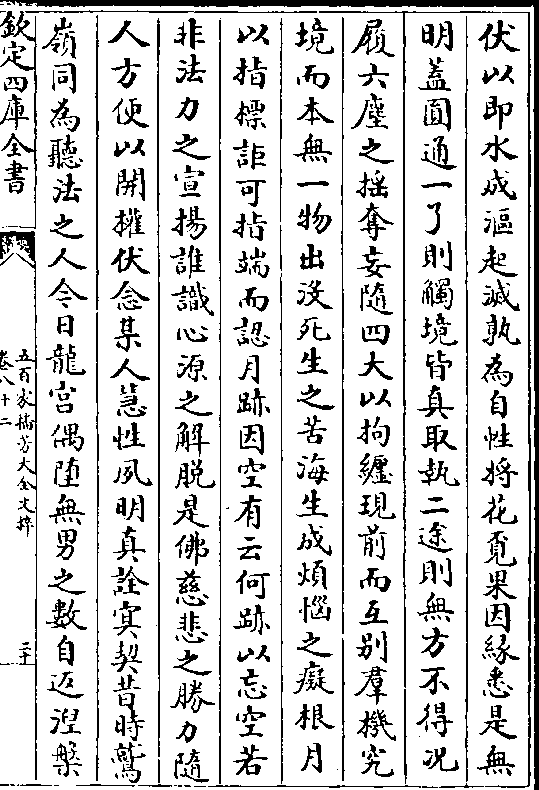 伏以即水成漚起滅孰為自性將花覓果因緣悉是無
明蓋圓通一了則觸境皆真取執二途則無方不得况
履六塵之揺奪妄隨四大以拘纏現前而互别羣機究
境而本無一物出没死生之苦海生成煩惱之癡根月
以指標詎可指端而認月跡因空有云何跡以忘空若
非法力之宣揚誰識心源之解脱是佛慈悲之勝力隨
人方便以開權伏念某人慧性夙明真詮冥契昔時鷲
嶺同為聽法之人今日龍宫偶墮無男之數自返湼槃
欽定四庫全書
五百家播芳大全文粹
卷八十二
三十